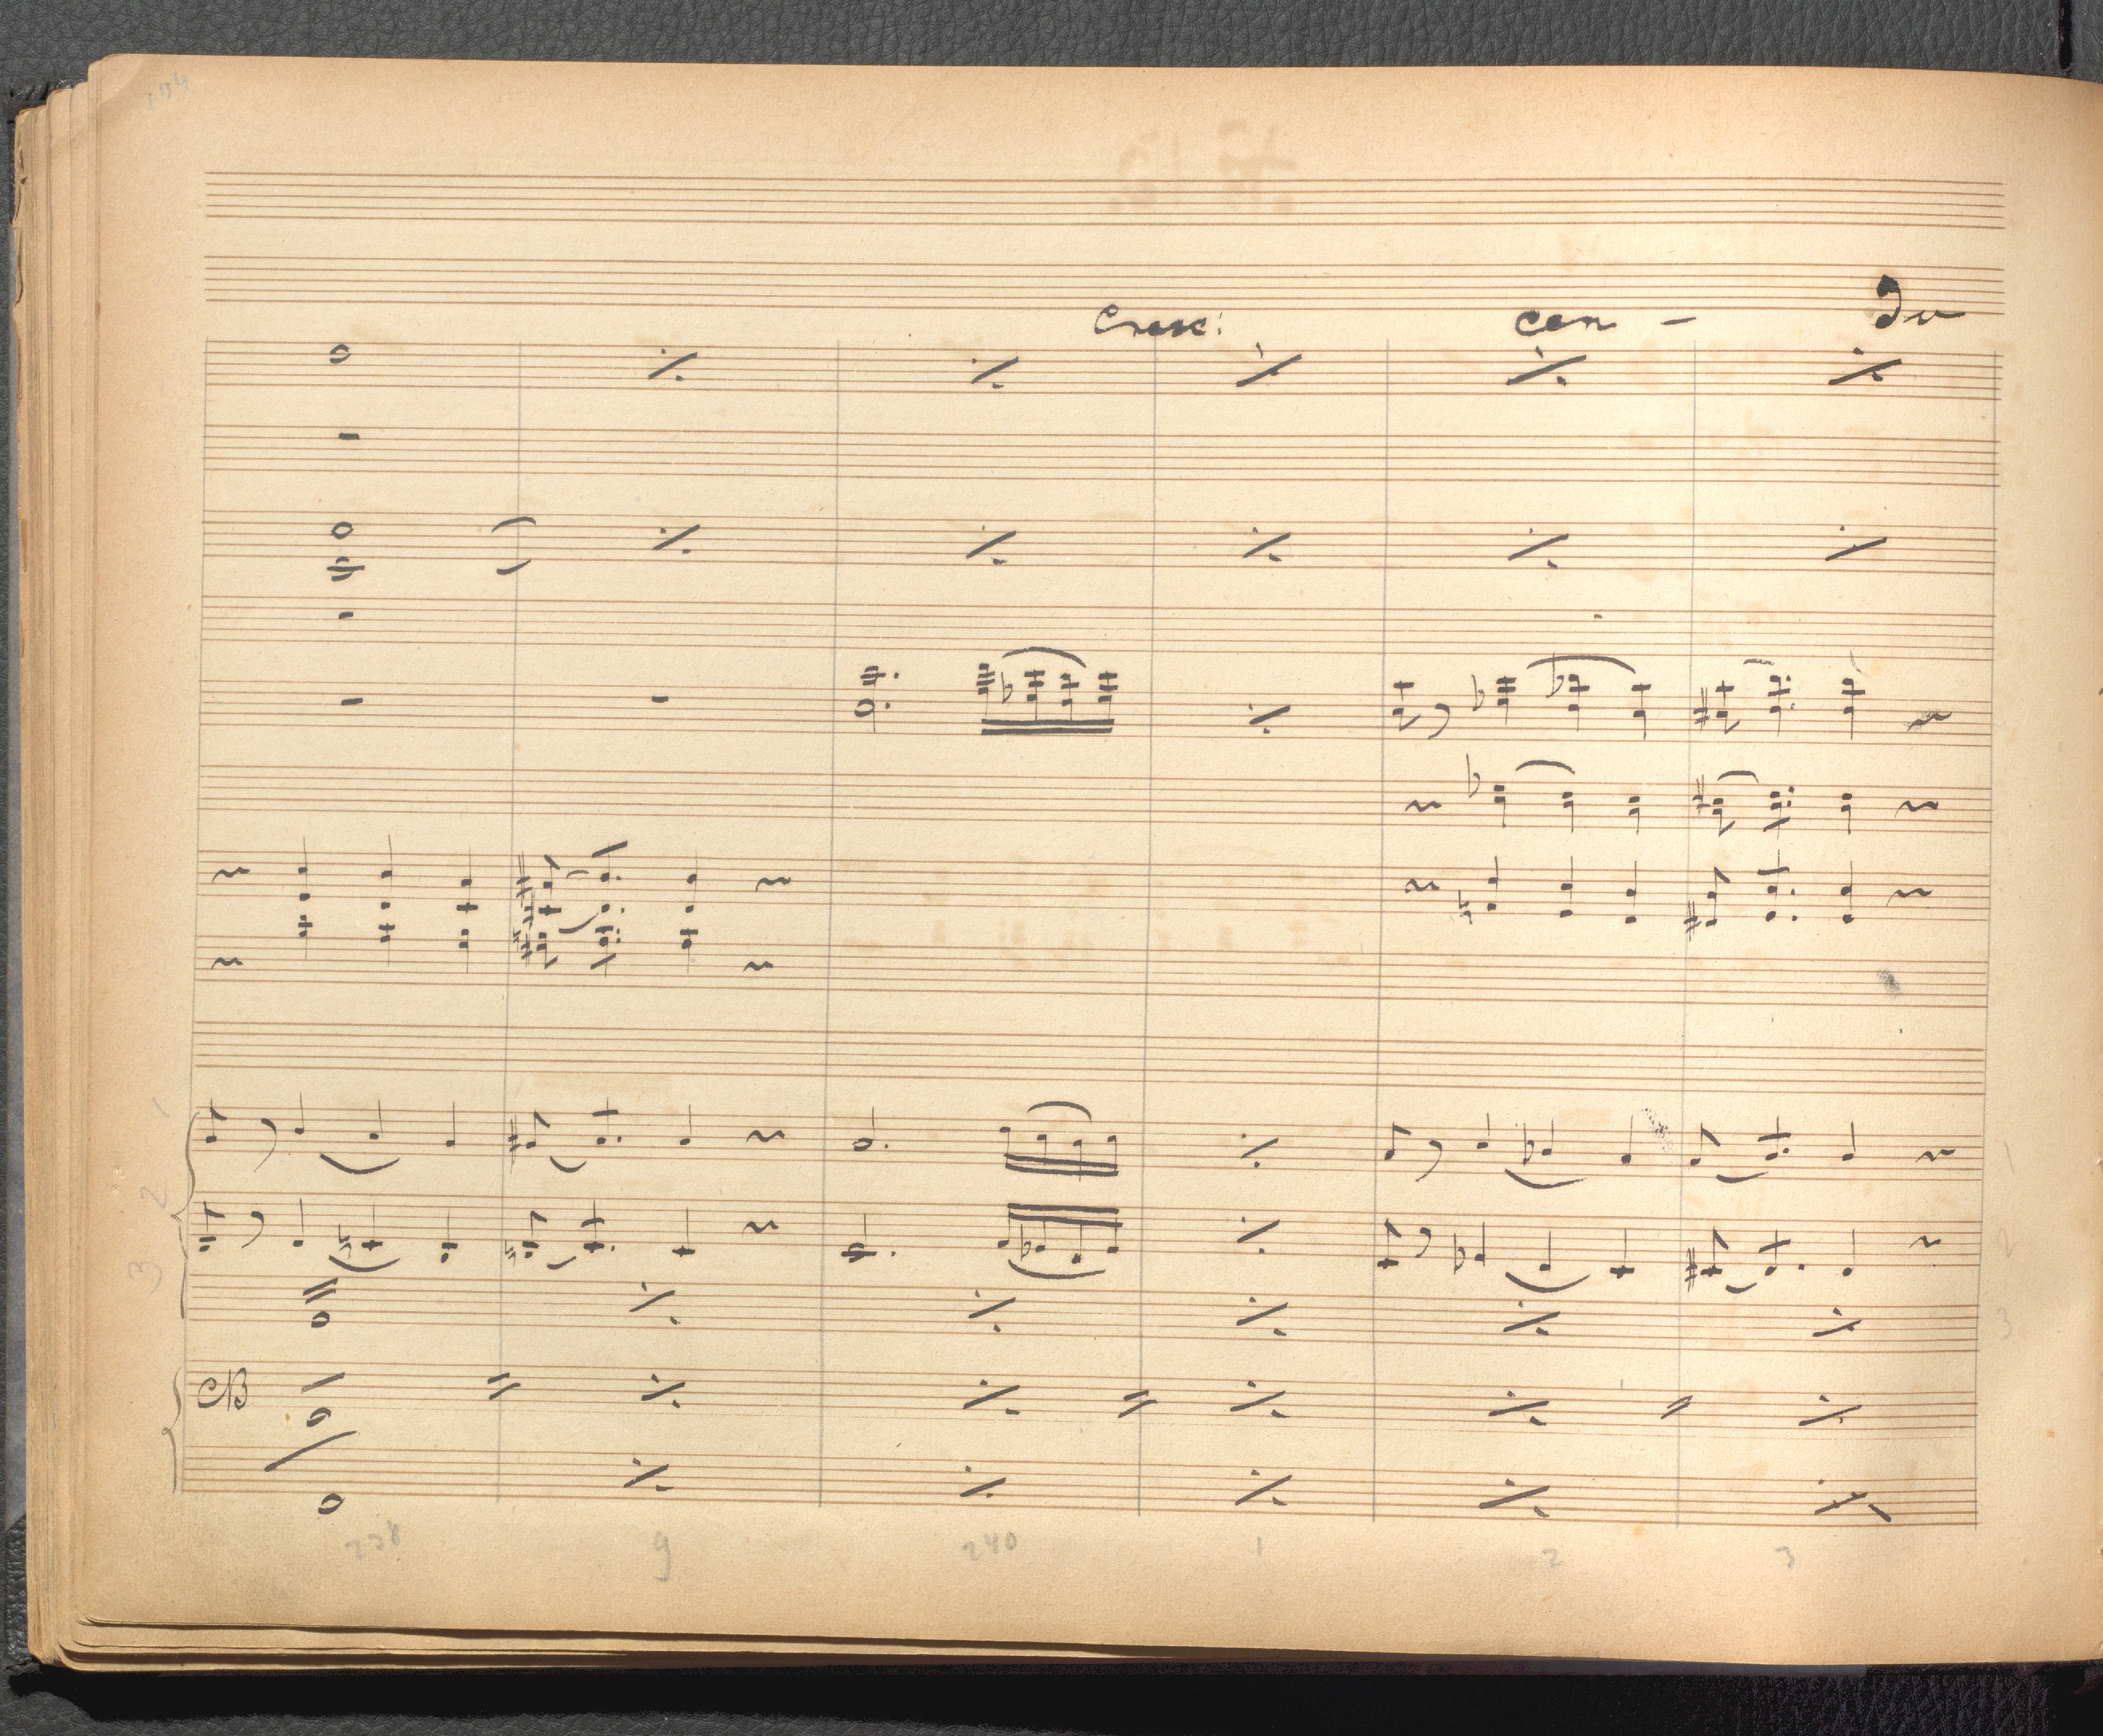 194
Cresc: cen - do
CB
1
2
3
1
2
3
238 9 240 1 2 3